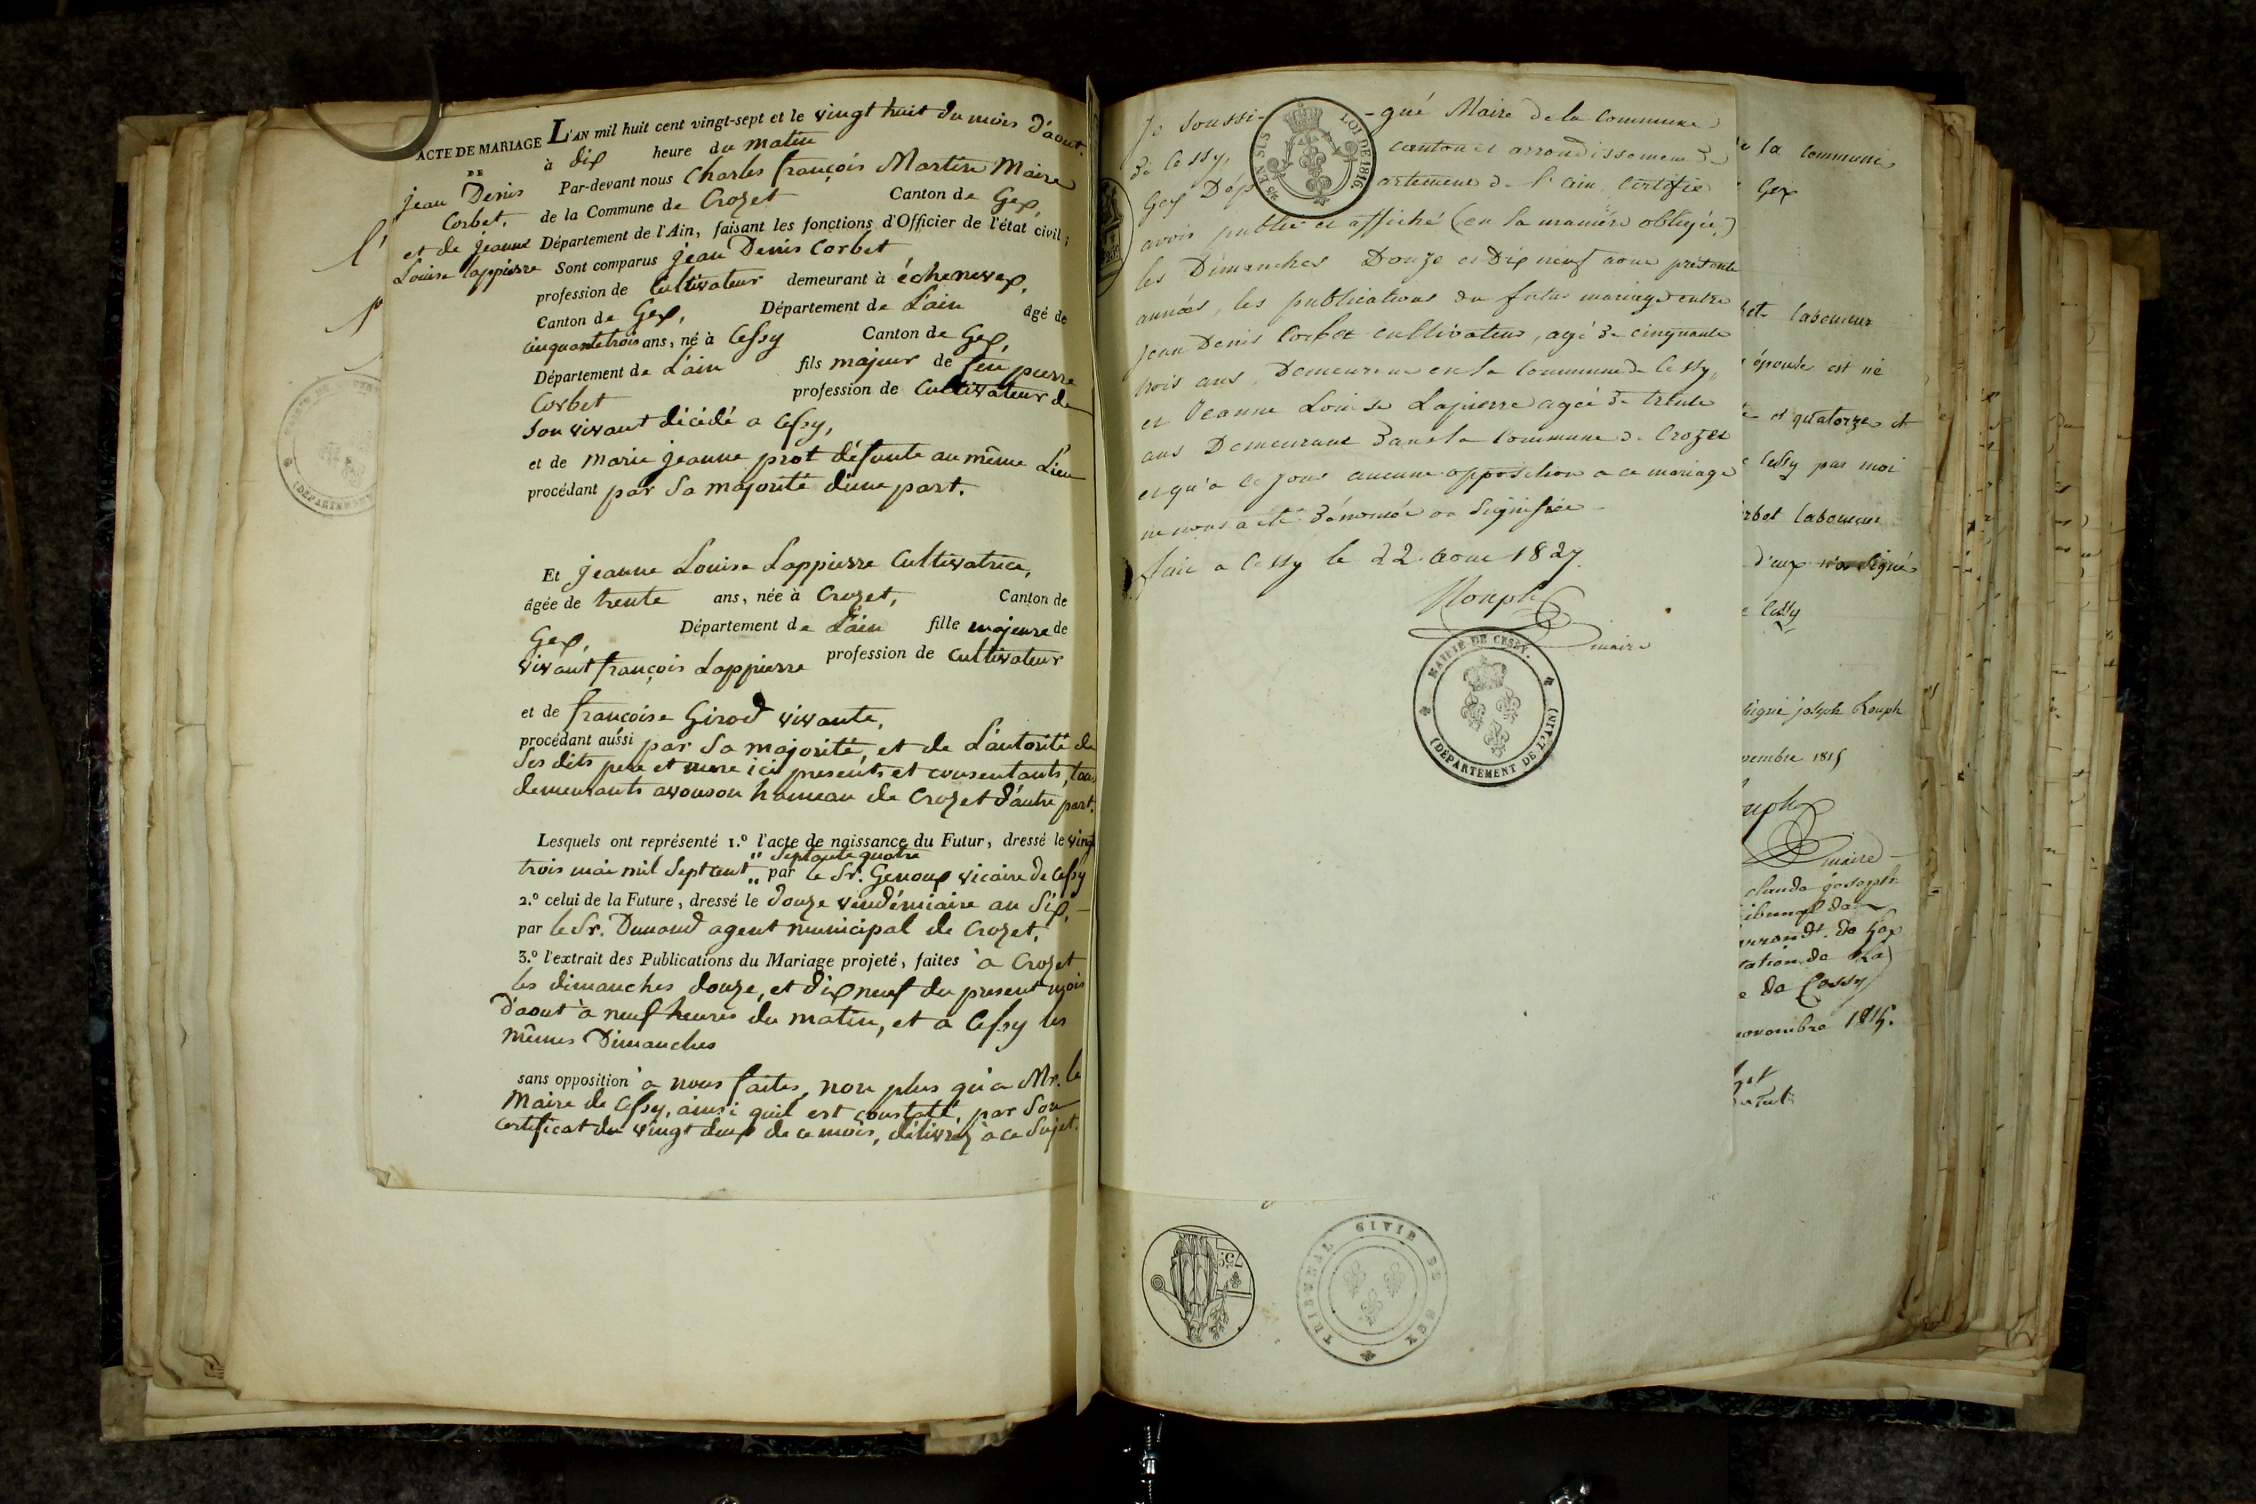 ACTE DE MARIAGE
DE
jean Denis
Corbet,
et de jeanne
Louise Lappierre
L'AN mil huit cent vingt-sept et le vingt huit du mois d'aout.
à dix heure du matin
Par-devant nous Charles françois Martin Maire
de la Commune de Crozet Canton de Gex,
Département de l'Ain, faisant les fonctions d'Officier de l'état civil;
Sont comparus jean Denis Corbet
profession de Cultivateur demeurant à échenevex,
Canton de Gex, Département de L'ain âgé de
cinquante trois ans, né à Cessy Canton de Gex,
Département de L'ain fils majeur de feu pierre
Corbet profession de Cultivateur de
son vivant décédé a Cessy,
et de marie jeanne prot défunte au même Lieu
procédant par sa majorité d'une part.
Et jeanne Louise Lappierre Cultivatrice,
âgée de trente ans, née à Crozet, Canton de
Gex, Département de L'ain fille majeure de
vivant françois Lappierre profession de Cultivateur
et de françoise Girod vivante,
procédant aussi par sa majorité, et de L'autorité de
ses dits pere et mere ici presents et consentants, tous
demeurants avouson hameau de Crozet d'autre part.
Lesquels ont représenté 1.º l'acte de naissance du Futur, dressé le vingt
trois mai mil sept cent " septante quatre " par le Sr. Genoux vicaire de Cessy
2.º celui de la Future, dressé le douze vendémiaire an six,
par le Sr. Dunand agent municipal de Crozet,
3.º l'extrait des Publications du Mariage projeté, faites à Crozet
les dimanches douze, et dix neuf du present mois
d'aout à neuf heures du matin, et a Cessy les
mêmes Dimanches
sans opposition à nous faites, non plus qu'a Mr. le
Maire de Cessy, ainsi quil est constaté, par son
certificat du vingt deux de ce mois, délivré à ce sujet.
Je soussi- -gné Maire de la Commune
de Cessy, canton et arrondissement de
Gex Dép artement de l'ain, certifie
avoir publié et affiché (en la manière obligée,)
les Dimanches Douze et Dix neuf aout présente
année, les publications du futur mariage entre
Jean Denis Corbet cultivateur, agé de cinquante
trois ans, Demeurant en la Commune de Cessy,
et Jeanne Louise Lapierre agée de trente
ans Demeurant dans la Commune de Crozet
et qu'a ce jour aucune opposition a ce mariage
ne nous a été dénoncée ou signifiée
fait a Cessy le 22 aout 1827.
Rouph
maire
25 EN SUS
LOI DE 1816
MAIRIE DE CESSY.
(DÉPARTEMENT DE L'AIN)
TRIBUNAL CIVIL DE GEX
75c
la commune
Gex
laboureur
épouse est né
et quatorze et
Cessy par moi
laboureur
d'eux
Cessy
signé joseph Rouph
1815
maire
claude joseph
de Gex
de Cessy
novembre 1815.